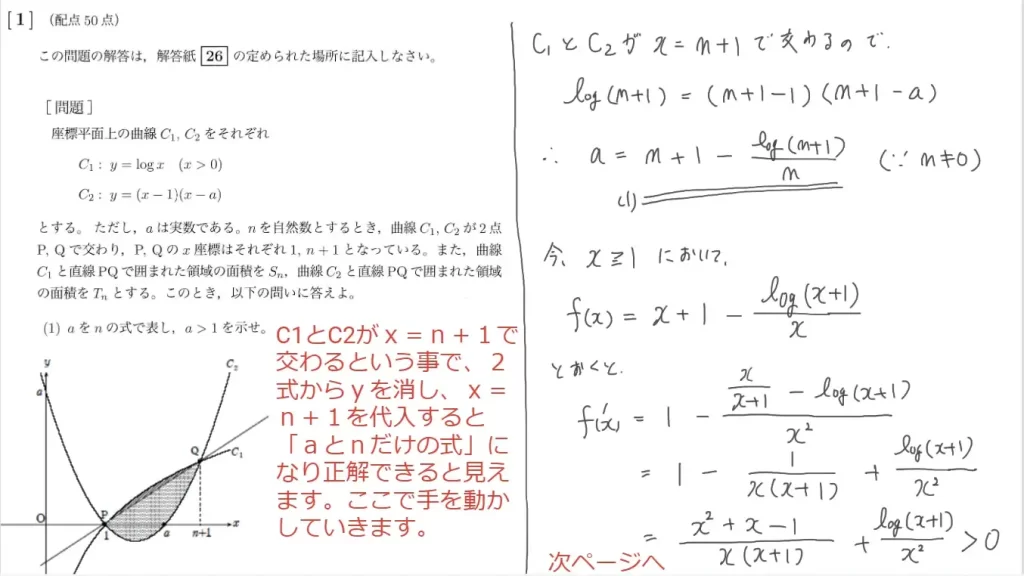 [1] (配点 50 点)
この問題の解答は,解答紙 26 の定められた場所に記入しなさい。
[問題]
座標平面上の曲線 C₁, C₂ をそれぞれ
C₁: y = log x (x > 0)
C₂: y = (x − 1)(x − a)
とする。ただし,a は実数である。n を自然数とするとき,曲線 C₁, C₂ が 2 点
P, Q で交わり,P, Q の x 座標はそれぞれ 1, n + 1 となっている。また,曲線
C₁ と直線 PQ で囲まれた領域の面積を Sₙ,曲線 C₂ と直線 PQ で囲まれた領域
の面積を Tₙ とする。このとき,以下の問いに答えよ。
(1) a を n の式で表し,a > 1 を示せ。
y
a
C₂
Q
C₁
O
P
1
a
n+1
x
C1とC2がx=n+1で
交わるという事で、2
式からyを消し、x=
n+1を代入すると
「aとnだけの式」に
なり正解できると見え
ます。ここで手を動か
していきます。
C₁とC₂がx=n+1で交わるので.
log(n+1) = (n+1−1)(n+1−a)
∴ a = n+1 − log(n+1)/n (∵ n≠0)
(1)
今、x≧1において、
f(x) = x+1 − log(x+1)/x
とおくと.
f′(x) = 1 − (x/(x+1) − log(x+1))/x²
= 1 − 1/(x(x+1)) + log(x+1)/x²
= (x²+x−1)/(x(x+1)) + log(x+1)/x² > 0
次ページへ